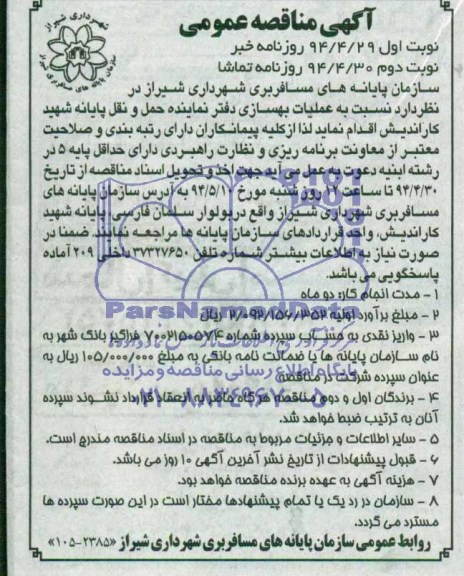 آگهی مناقصه عمومی
نوبت اول ۹۴/۴/۲۹ روزنامه خبر
نوبت دوم ۹۴/۴/۳۰ روزنامه تماشا
شهرداری شیراز
سازمان پایانه های مسافربری شیراز
سازمان پایانه های مسافربری شهرداری شیراز در
نظر دارد نسبت به عملیات بهسازی دفتر نماینده حمل و نقل پایانه شهید
کاراندیش اقدام نماید لذا از کلیه پیمانکاران دارای رتبه بندی و صلاحیت
معتبر از معاونت برنامه ریزی و نظارت راهبردی دارای حداقل پایه ۵ در
رشته ابنیه دعوت به عمل می آید جهت اخذ و تحویل اسناد مناقصه از تاریخ
۹۴/۴/۳۰ تا ساعت ۱۲ روز شنبه مورخ ۹۴/۵/۱۰ به آدرس سازمان پایانه های
مسافربری شهرداری شیراز واقع در بولوار سلمان فارسی، پایانه شهید
کاراندیش، واحد قراردادهای سازمان پایانه ها مراجعه نمایند. ضمنا در
صورت نیاز به اطلاعات بیشتر شماره تلفن ۳۷۳۲۷۶۵۰ داخلی ۲۰۹ آماده
پاسخگویی می باشد.
۱ - مدت انجام کار: دو ماه
۲ - مبلغ برآورد اولیه ۲/۰۹۲/۱۵۶/۳۵۲ ریال
۳ - واریز نقدی به حساب سپرده شماره ۷۰۰۲۱۵۰۰۵۷۴ مرکزی بانک شهر به
نام سازمان پایانه ها یا ضمانت نامه بانکی به مبلغ ۱۰۵/۰۰۰/۰۰۰ ریال به
عنوان سپرده شرکت در مناقصه
۴ - برندگان اول و دوم مناقصه هر گاه حاضر به انعقاد قرارداد نشوند سپرده
آنان به ترتیب ضبط خواهد شد.
۵ - سایر اطلاعات و جزئیات مربوط به مناقصه در اسناد مناقصه مندرج است.
۶ - قبول پیشنهادات از تاریخ نشر آخرین آگهی ۱۰ روز می باشد.
۷ - هزینه آگهی به عهده برنده مناقصه خواهد بود.
۸ - سازمان در رد یک یا تمام پیشنهادها مختار است در این صورت سپرده ها
مسترد می گردد.
روابط عمومی سازمان پایانه های مسافربری شهرداری شیراز «۲۳۸۵-۱۰۵»
ParsNamadData
پایگاه اطلاع رسانی مناقصه و مزایده
۰۲۱-۸۸۳۴۹۶۷۰-۵